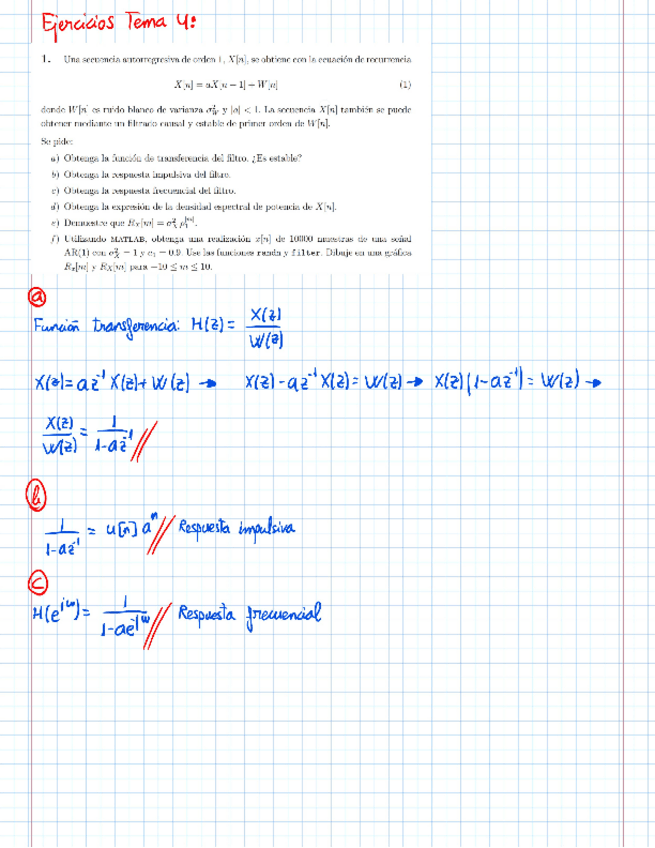 Ejercicios Tema 4:
1. Una secuencia autorregresiva de orden 1, X[n], se obtiene con la ecuación de recurrencia
X[n] = aX[n − 1] + W[n] (1)
donde W[n] es ruido blanco de varianza σ²_W y |a| < 1. La secuencia X[n] también se puede
obtener mediante un filtrado causal y estable de primer orden de W[n].
Se pide:
a) Obtenga la función de transferencia del filtro. ¿Es estable?
b) Obtenga la respuesta impulsiva del filtro.
c) Obtenga la respuesta frecuencial del filtro.
d) Obtenga la expresión de la densidad espectral de potencia de X[n].
e) Demuestre que R_X[m] = σ²_X ρ_1^|m|.
f) Utilizando MATLAB, obtenga una realización x[n] de 10000 muestras de una señal
AR(1) con σ²_X = 1 y c₁ = 0.9. Use las funciones randn y filter. Dibuje en una gráfica
R_x[m] y R_X[m] para −10 ≤ m ≤ 10.
a
Función transferencia: H(z) = X(z) / W(z)
X(z) = az⁻¹ X(z) + W(z) → X(z) - az⁻¹ X(z) = W(z) → X(z)(1-az⁻¹) = W(z) →
X(z) / W(z) = 1 / 1-az⁻¹ //
b
1 / 1-az⁻¹ = u[n] aⁿ // Respuesta impulsiva
c
H(e^jω) = 1 / 1-ae^-jω // Respuesta frecuencial